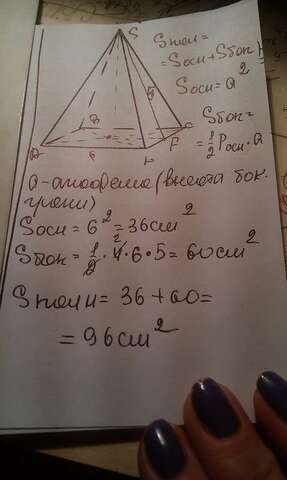 S
Sполн =
= Sосн + Sбок
Sосн = a²
Sбок =
= 1/2 Pосн · a
6
F
a - апофема (высота бок.
грани)
Sосн = 6² = 36 см²
Sбок = 1/2 · 4 · 6 · 5 = 60 см²
Sполн = 36 + 60 =
= 96 см²